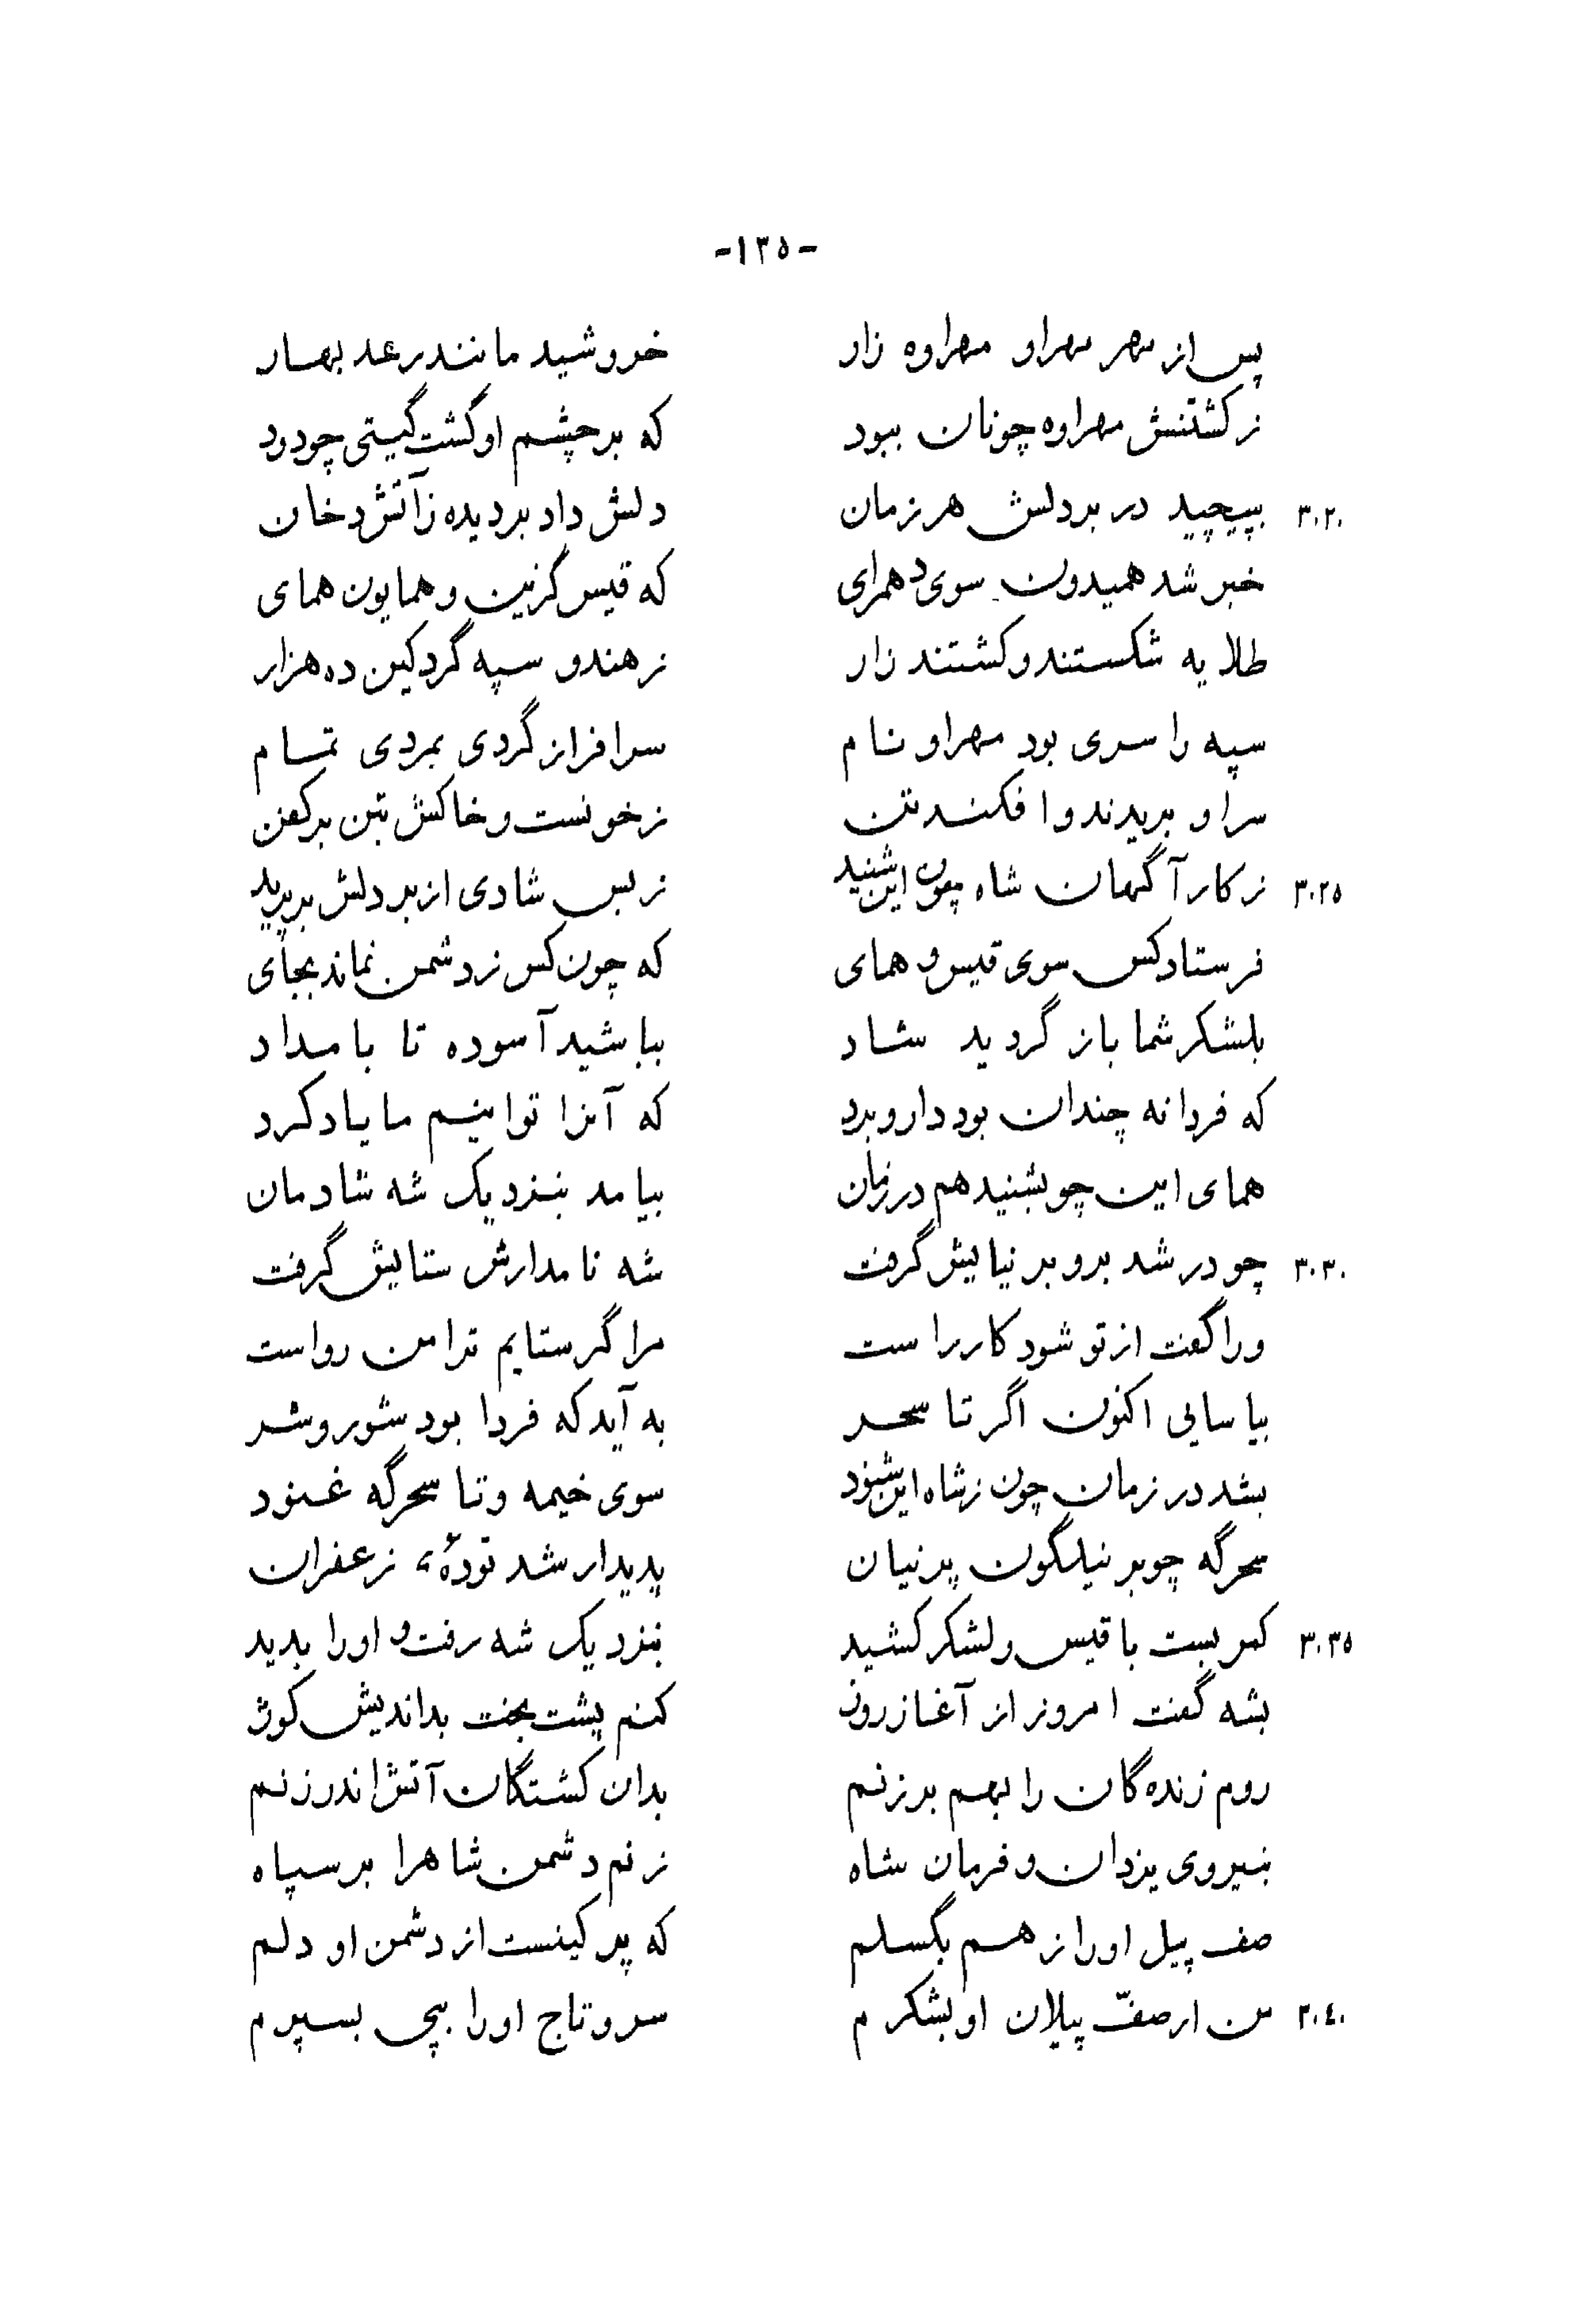 -۱۳۵-
پس از مهر مهراو مهراوه زار خروشید مانند رعد بهار
ز کشتنش مهراوه چونان ببود که بر چشم او گشت گیتی چو دود
۳۰۲۰ بپیچید در بر دلش هر زمان دلش داد بر دیده ز آتش دخان
خبر شد همیدون سوی دهمرای که قیس گزین و همایون همای
طلایه شکستند و کشتند زار ز هندو سپه گرد کین ده هزار
سپه را سری بود مهراو نام سرافراز گردی بمردی تمام
سر او بریدند و افکند تن ز خونست و خاکش بتن بر کفن
۳۰۲۵ ز کارآگهان شاه چون این شنید ز بس شادی از بر دلش بر پرید
فرستاد کس سوی قیس و همای که چون کس ز دشمن نماند بجای
بلشکر شما باز گردید شاد بباشید آسوده تا بامداد
که فردا نه چندان بود دار و برد که آنرا توانیم ما یاد کرد
همای این چو بشنید هم در زمان بیامد بنزدیک شه شادمان
۳۰۳۰ چو در شد برو بر نیایش گرفت شه نامدارش ستایش گرفت
ورا گفت از تو شود کار راست مرا گر ستایم ترا من رواست
بیاسایی اکنون اگر تا سحر به آید که فردا بود شور و شر
بشد در زمان چون ز شاه این شنود سوی خیمه و تا سحرگه غنود
سحرگه چو بر نیلگون پرنیان پدیدار شد تودهٔ زعفران
۳۰۳۵ کمر بست با قیس و لشکر کشید بنزدیک شه رفت و او را بدید
بشه گفت امروز از آغاز روز کنم پشت بخت بداندیش کوژ
روم زنده گان را بهم بر زنم بدان کشتگان آتش اندر زنم
بنیروی یزدان و فرمان شاه زنم دشمن شاهرا بر سپاه
صف پیل او را ز هم بگسلم که پر کینست از دشمن او دلم
۳۰٤۰ من ار صفّ پیلان او بشکرم سر و تاج او را بپی بسپرم